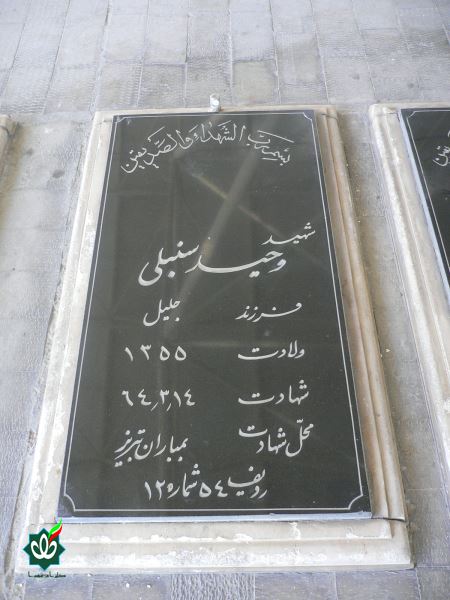 بسم رب الشهداء والصدیقین
شهید
وحید سنبلی
فرزند جلیل
ولادت ۱۳۵۵
شهادت ۶۴٫۳٫۱۴
محل شهادت بمباران تبریز
ردیف ۵۴ شماره ۱۲